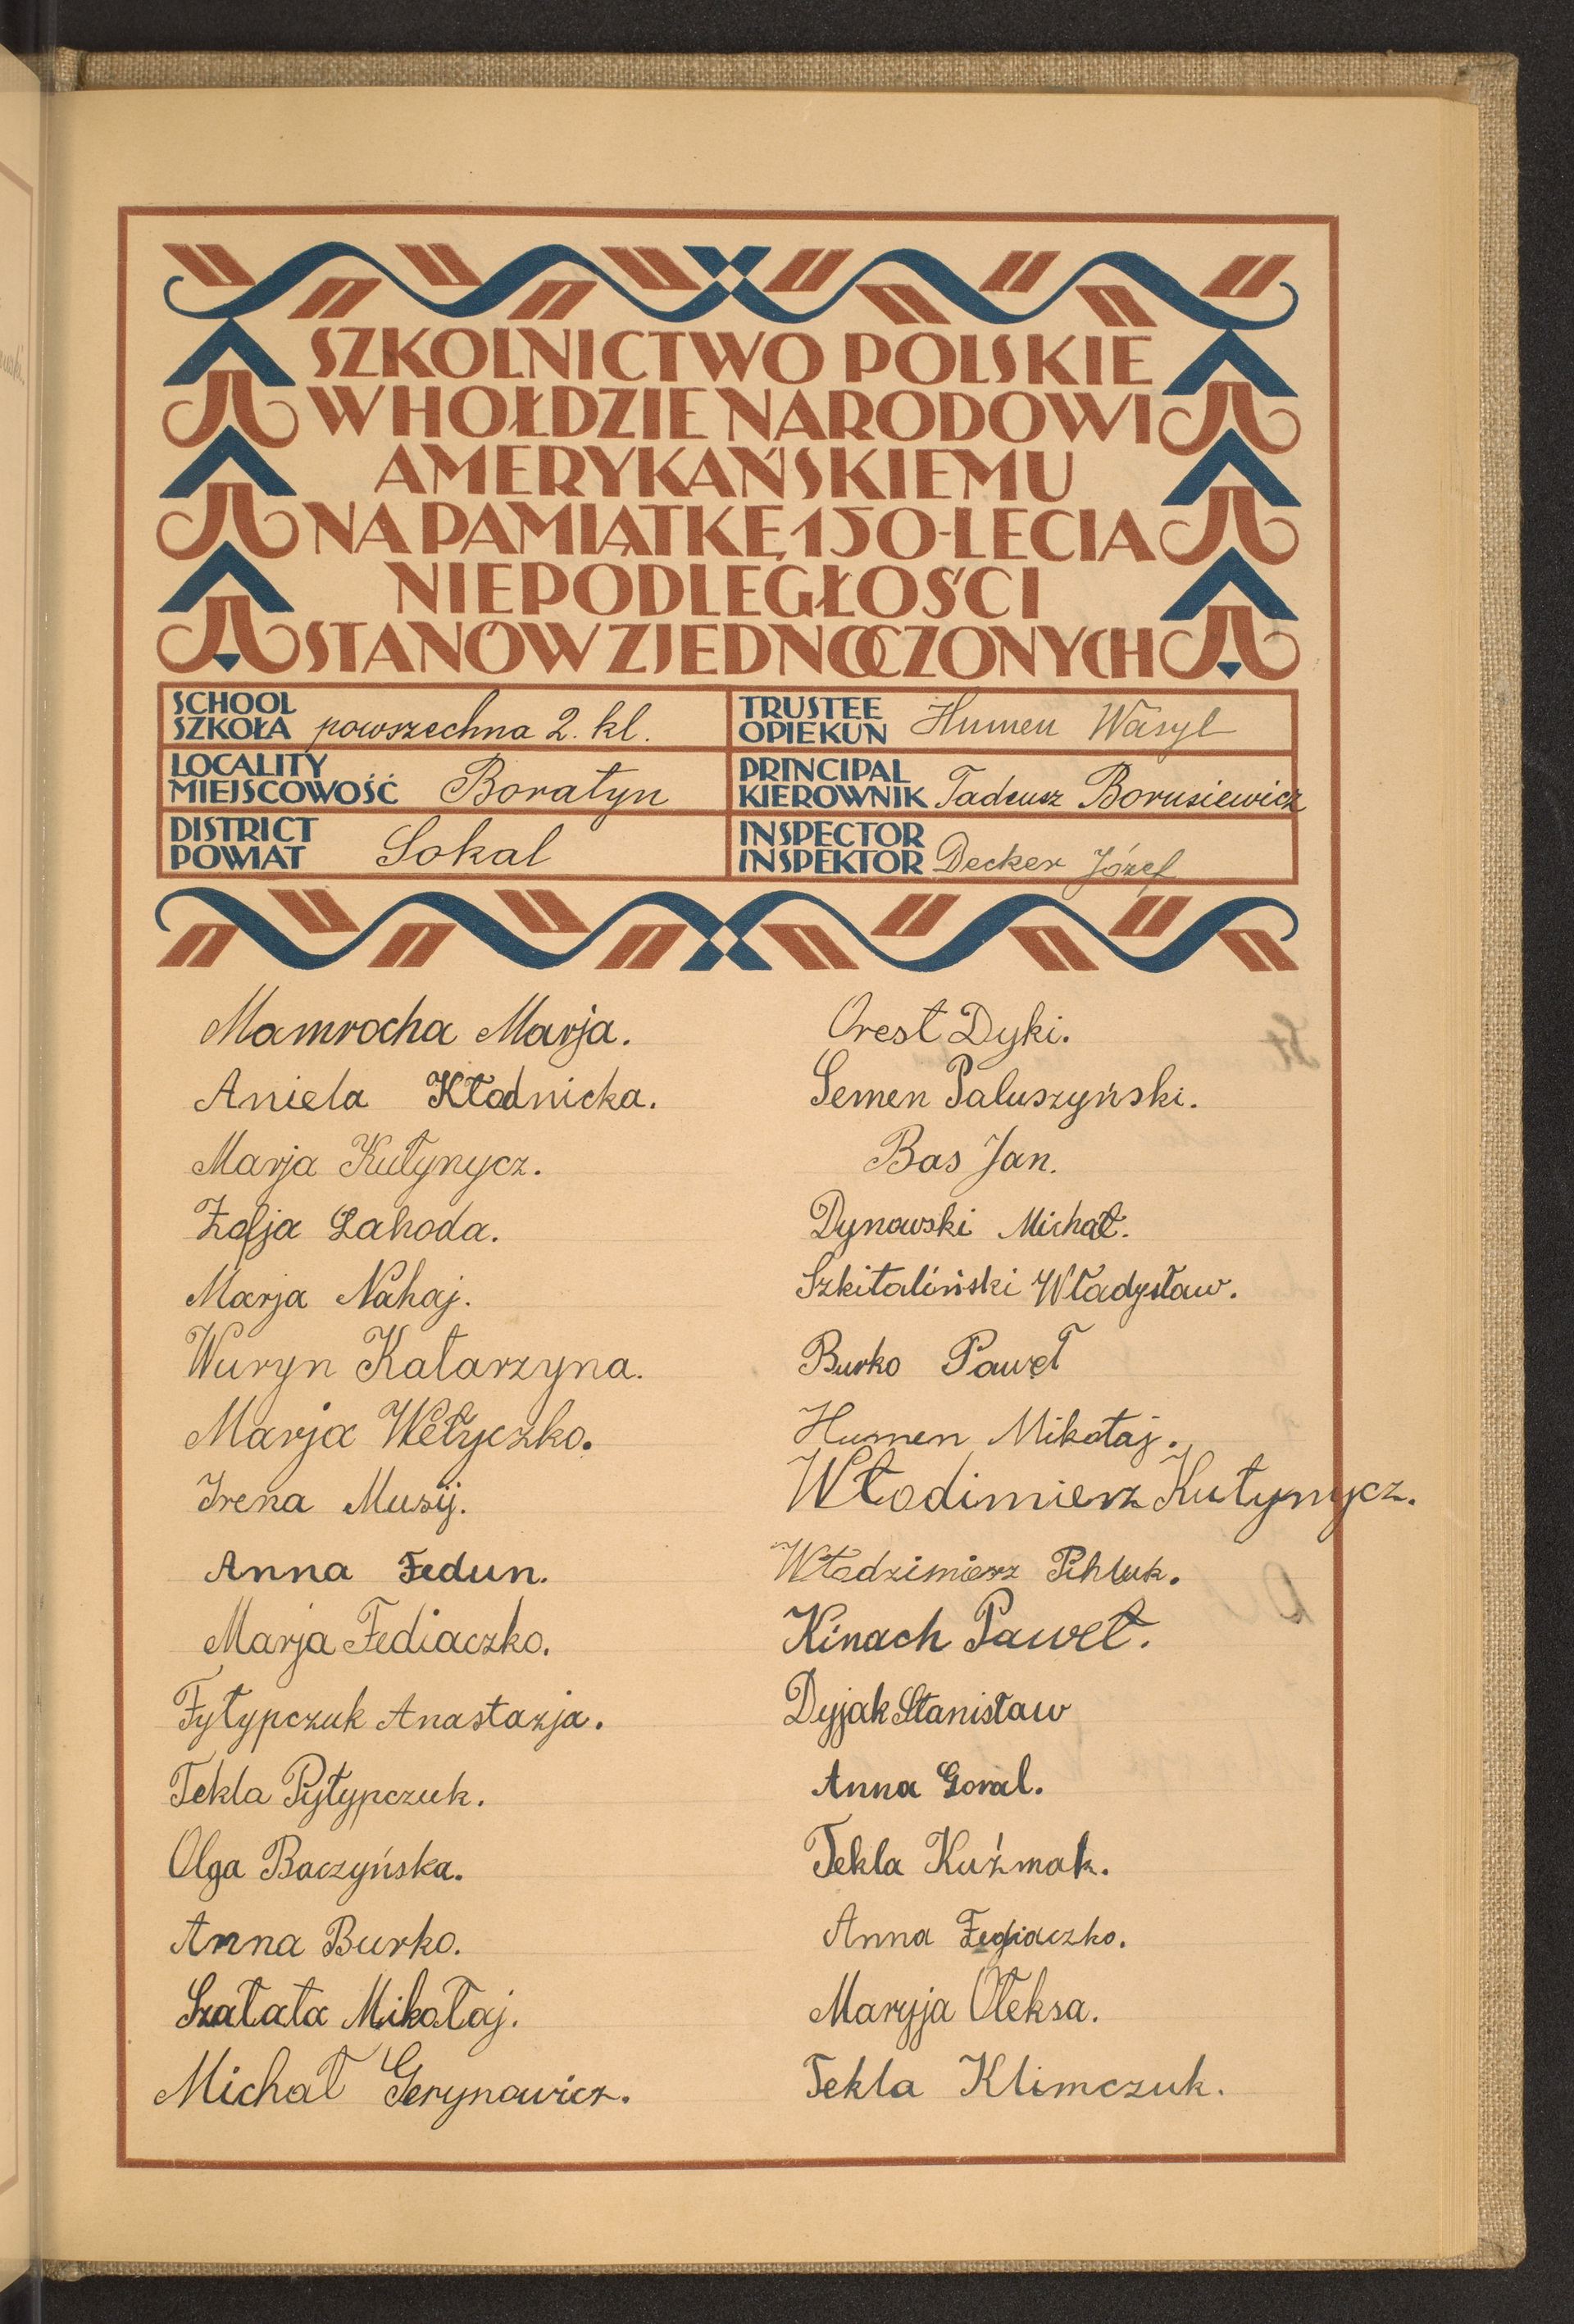 SZKOLNICTWO POLSKIE
W HOŁDZIE NARODOWI
AMERYKAŃSKIEMU
NA PAMIĄTKĘ 150-LECIA
NIEPODLEGŁOŚCI
STANÓW ZJEDNOCZONYCH
SCHOOL
SZKOŁA powszechna 2. kl.
LOCALITY
MIEJSCOWOŚĆ Boratyn
DISTRICT
POWIAT Sokal
TRUSTEE
OPIEKUN Humen Wasyl
PRINCIPAL
KIEROWNIK Tadeusz Borusiewicz
INSPECTOR
INSPEKTOR Decker Józef
Mamrocha Marja.
Aniela Kłodnicka.
Marja Kułynycz.
Zofja Lahoda.
Marja Nahaj.
Wuryn Katarzyna.
Marja Wełyczko.
Irena Musij.
Anna Fedun.
Marja Fediaczko.
Fyłypczuk Anastazja.
Tekla Pyłypczuk.
Olga Baczyńska.
Anna Burko.
Szałata Mikołaj.
Michał Gerynowicz.
Orest Dyki.
Semen Paluszyński.
Bas Jan.
Dynowski Michał.
Szkitaliński Władysław.
Burko Paweł
Humen Mikołaj.
Włodimierz Kułynycz.
Włodzimierz
Kinach Paweł.
Dyjak Stanisław
Anna Goral.
Tekla Kuźmak.
Anna Fediaczko.
Maryja Ołeksa.
Tekla Klimczuk.